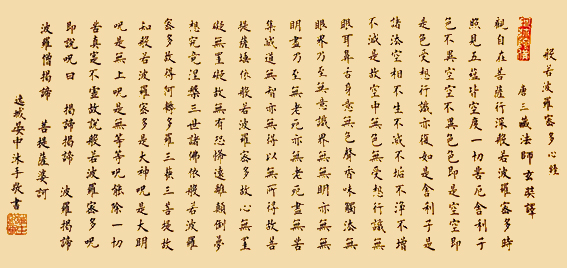 般若波羅蜜多心經
唐三藏法師玄奘譯
觀自在菩薩行深般若波羅蜜多時
照見五蘊皆空度一切苦厄舍利子
色不異空空不異色色即是空空即
是色受想行識亦復如是舍利子是
諸法空相不生不滅不垢不淨不增
不減是故空中無色無受想行識無
眼耳鼻舌身意無色聲香味觸法無
眼界乃至無意識界無無明亦無無
明盡乃至無老死亦無老死盡無苦
集滅道無智亦無得以無所得故菩
提薩埵依般若波羅蜜多故心無罣
礙無罣礙故無有恐怖遠離顛倒夢
想究竟涅槃三世諸佛依般若波羅
蜜多故得阿耨多羅三藐三菩提故
知般若波羅蜜多是大神呪是大明
呪是無上呪是無等等呪能除一切
苦真實不虛故說般若波羅蜜多呪
即說呪曰 揭諦揭諦 波羅揭諦
波羅僧揭諦 菩提薩婆訶
中沐手敬書